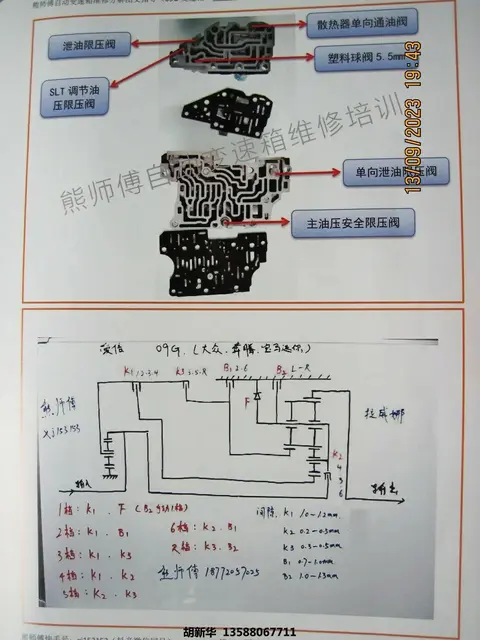 散热器单向通油阀
泄油限压阀
塑料球阀 5.5mm
SLT 调节油
压限压阀
熊师傅自动变速箱维修培训
13/09/2023 19:43
单向泄油限压阀
主油压安全限压阀
爱信 09G.(大众.
K1.1.2.3.4
K3.3.5.R
B1.2.6
B2 L-R
F
熊师傅
xj153153
拉威娜
K2
4
5
6
输入
输出
1档: K1 . F (B2手动1档)
2档: K1 . B1
3档: K1 . K3
4档: K1 . K2
5档: K2 . K3
6档: K2 . B1
R档: K3 . B2
熊师傅 18772057025
间隙. K1 1.0-1.2mm
K2 0.2-0.5mm
K3 0.3-0.5mm
B1 0.7-1.0mm
B2 1.0-1.3mm
胡新华 13588067711